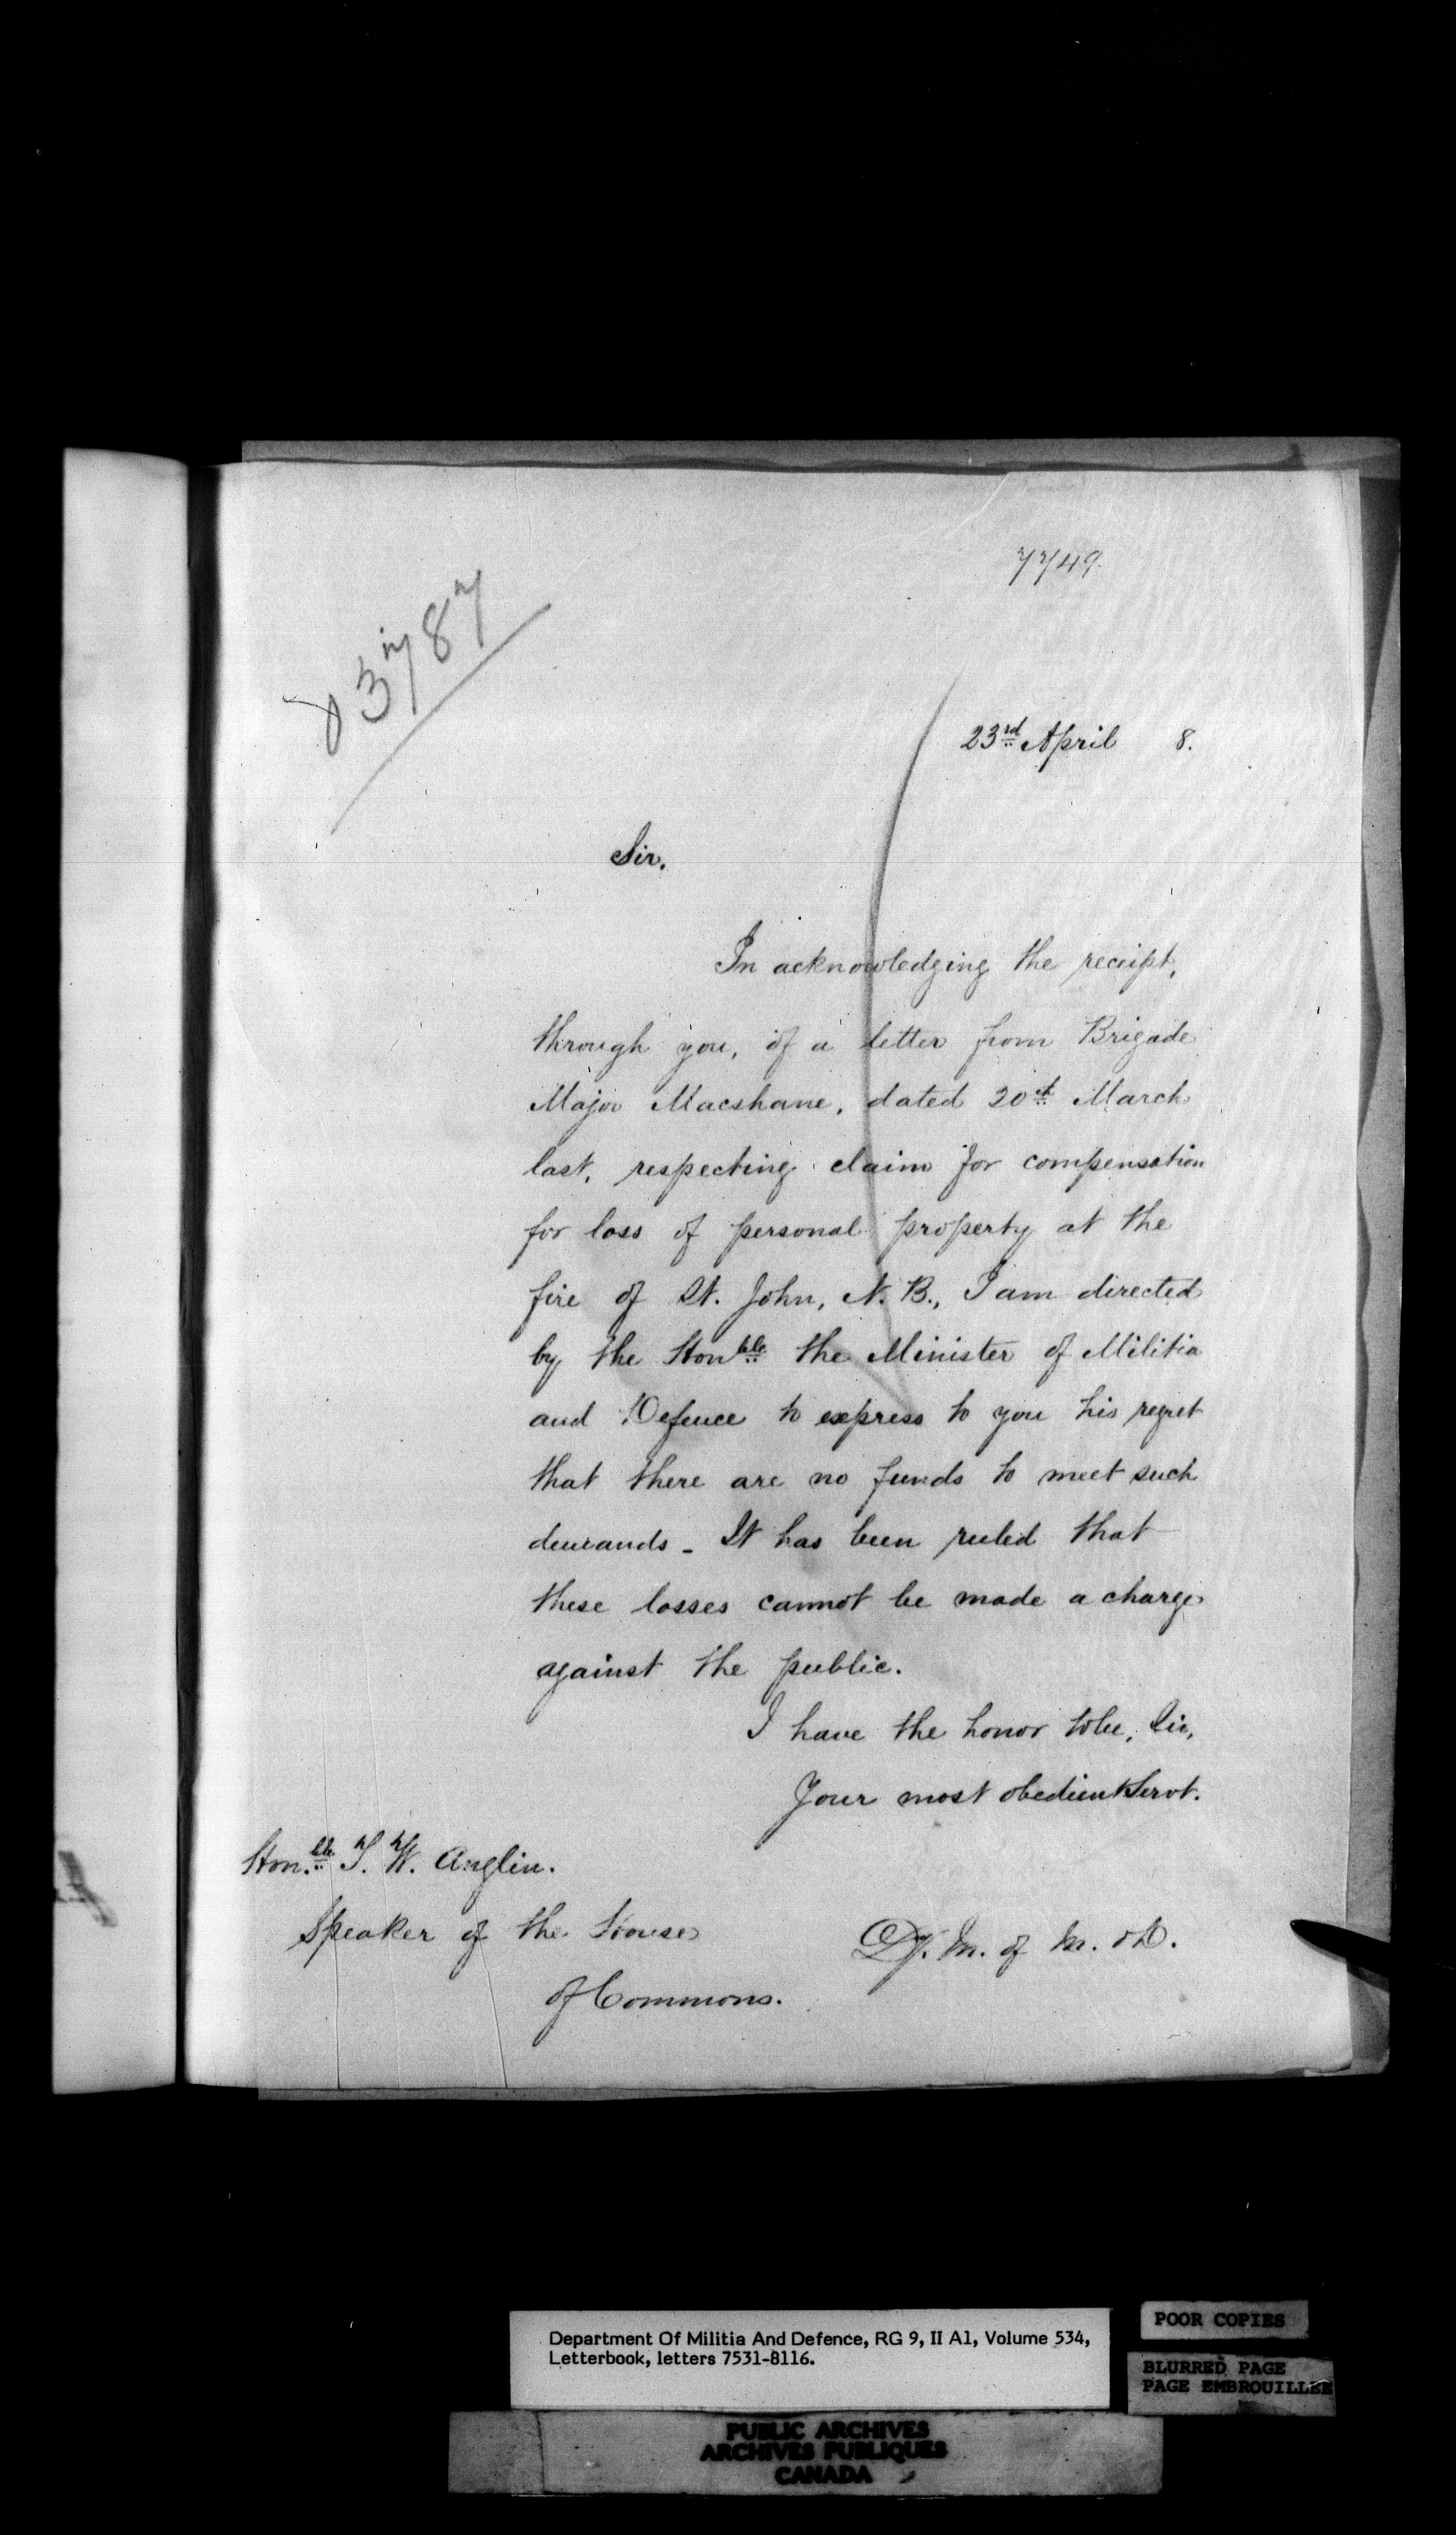 7749
03787
23rd April 8.
Sir.
In acknowledging the receipt,
through you, of a letter from Brigade
Major Macshane, dated 20th March
last, respecting claim for compensation
for loss of personal property at the
fire of St. John, N. B., I am directed
by the Honble the Minister of Militia
and Defence to express to you his regret
that there are no funds to meet such
demands - It has been ruled that
these losses cannot be made a charge
against the public.
I have the honor to be, Sir,
Your most obedient Servt.
Hon.ble T. W. Anglin.
Speaker of the House
of Commons.
Dy. M. of M. & D.
Department Of Militia And Defence, RG 9, II A1, Volume 534,
Letterbook, letters 7531-8116.
POOR COPIES
BLURRED PAGE
PAGE EMBROUILLEE
PUBLIC ARCHIVES
ARCHIVES PUBLIQUES
CANADA